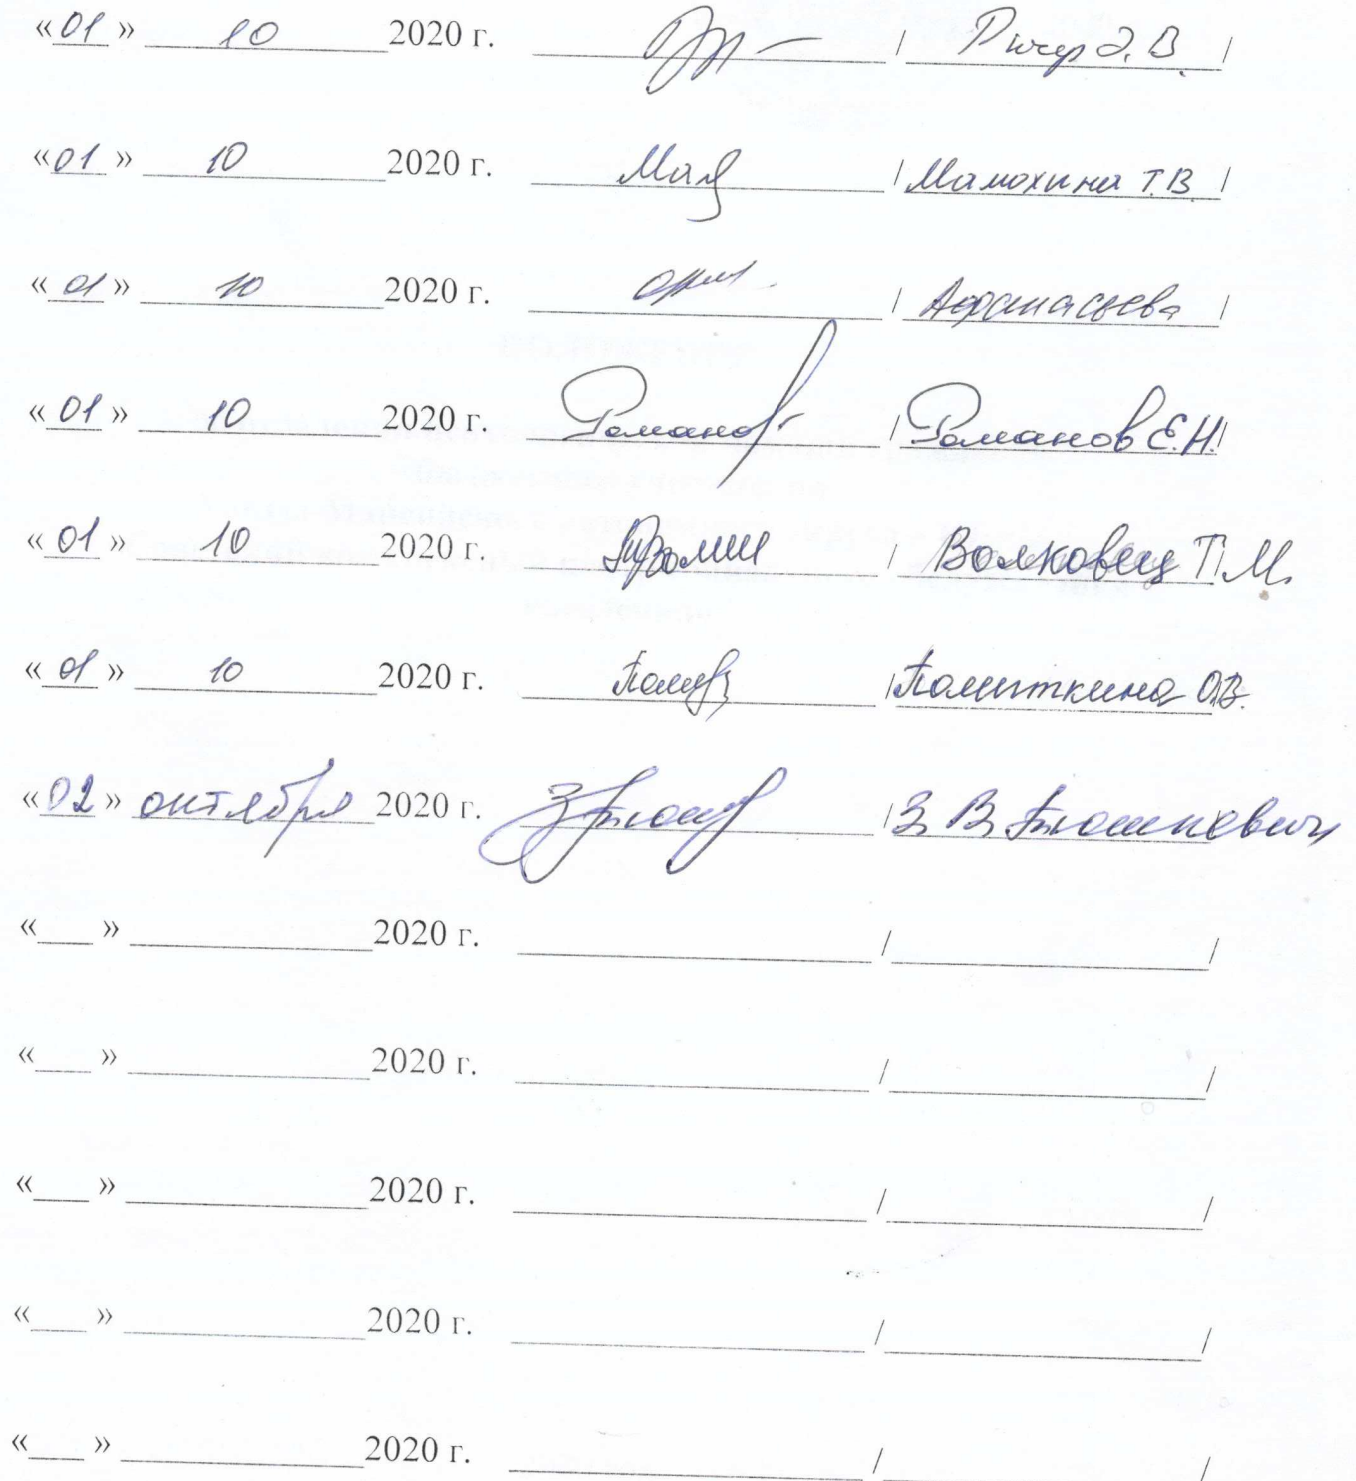 «01» 10 2020 г. / Э.В. /
«01» 10 2020 г. / Мамохина Т.В. /
«01» 10 2020 г. / Афанасьева /
«01» 10 2020 г. Романов / Романов Е.Н. /
«01» 10 2020 г. / Волковец Т.М.
«01» 10 2020 г. / Помиткина О.В.
«02» октября 2020 г. / З В Тюшкевич
«___» ____________ 2020 г. ____________ / ____________ /
«___» ____________ 2020 г. ____________ / ____________ /
«___» ____________ 2020 г. ____________ / ____________ /
«___» ____________ 2020 г. ____________ / ____________ /
«___» ____________ 2020 г. ____________ / ____________ /